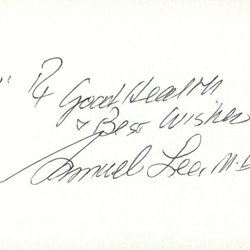 " ℞
Good Health
& Best Wishes
Samuel Lee, M.D